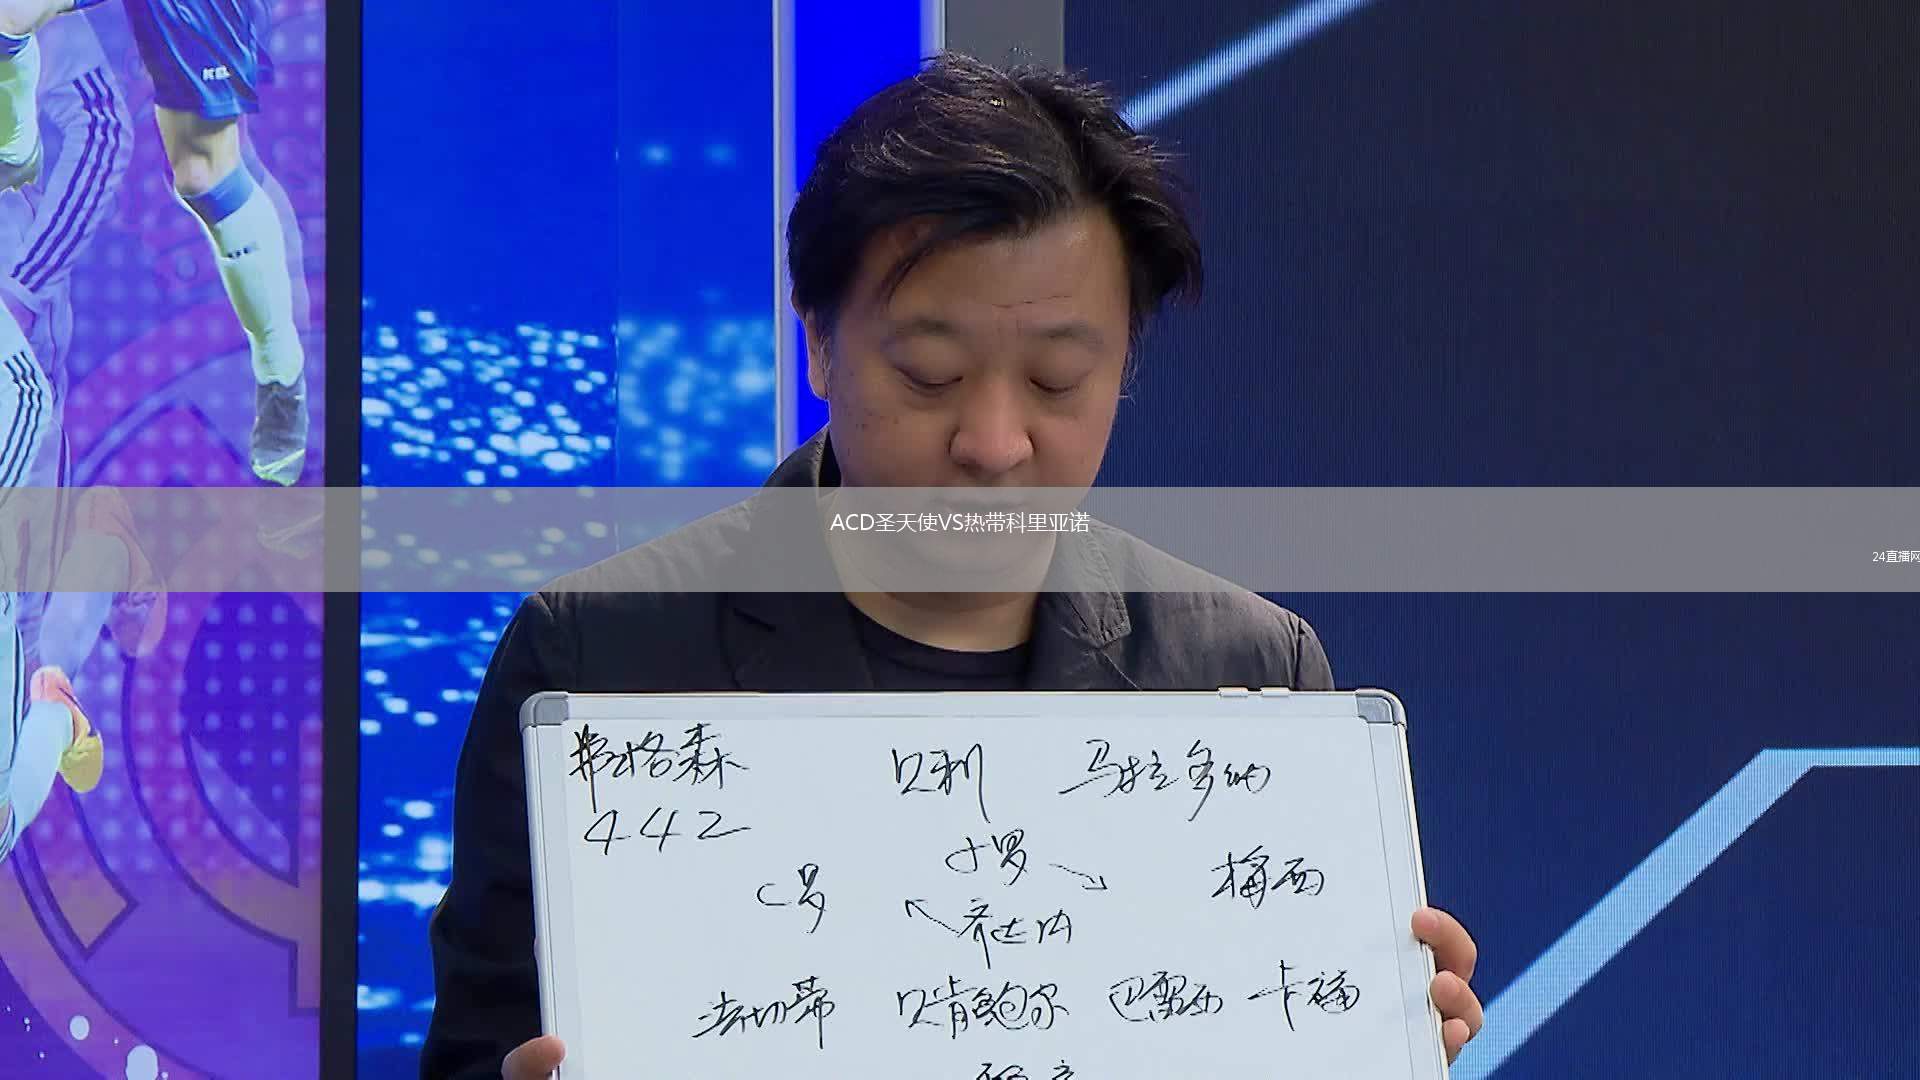 KELME
ACD圣天使VS热带科里亚诺
24直播网
弗格森
442
贝利 马拉多纳
小罗
C罗 梅西
齐达内
法切蒂 贝肯鲍尔 巴雷西 卡福